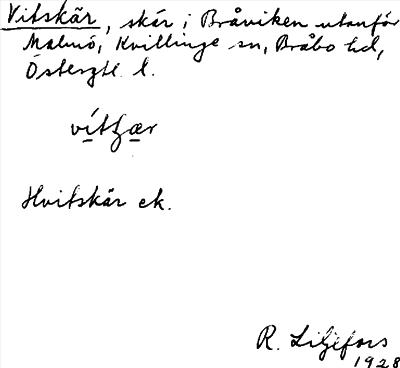 Vitskär, skär i Bråviken utanför
Malmö, Kvillinge sn, Bråbo hd,
Östergtl. l.
vítʃær
Hvitskär ek.
R. Liljefors
1928